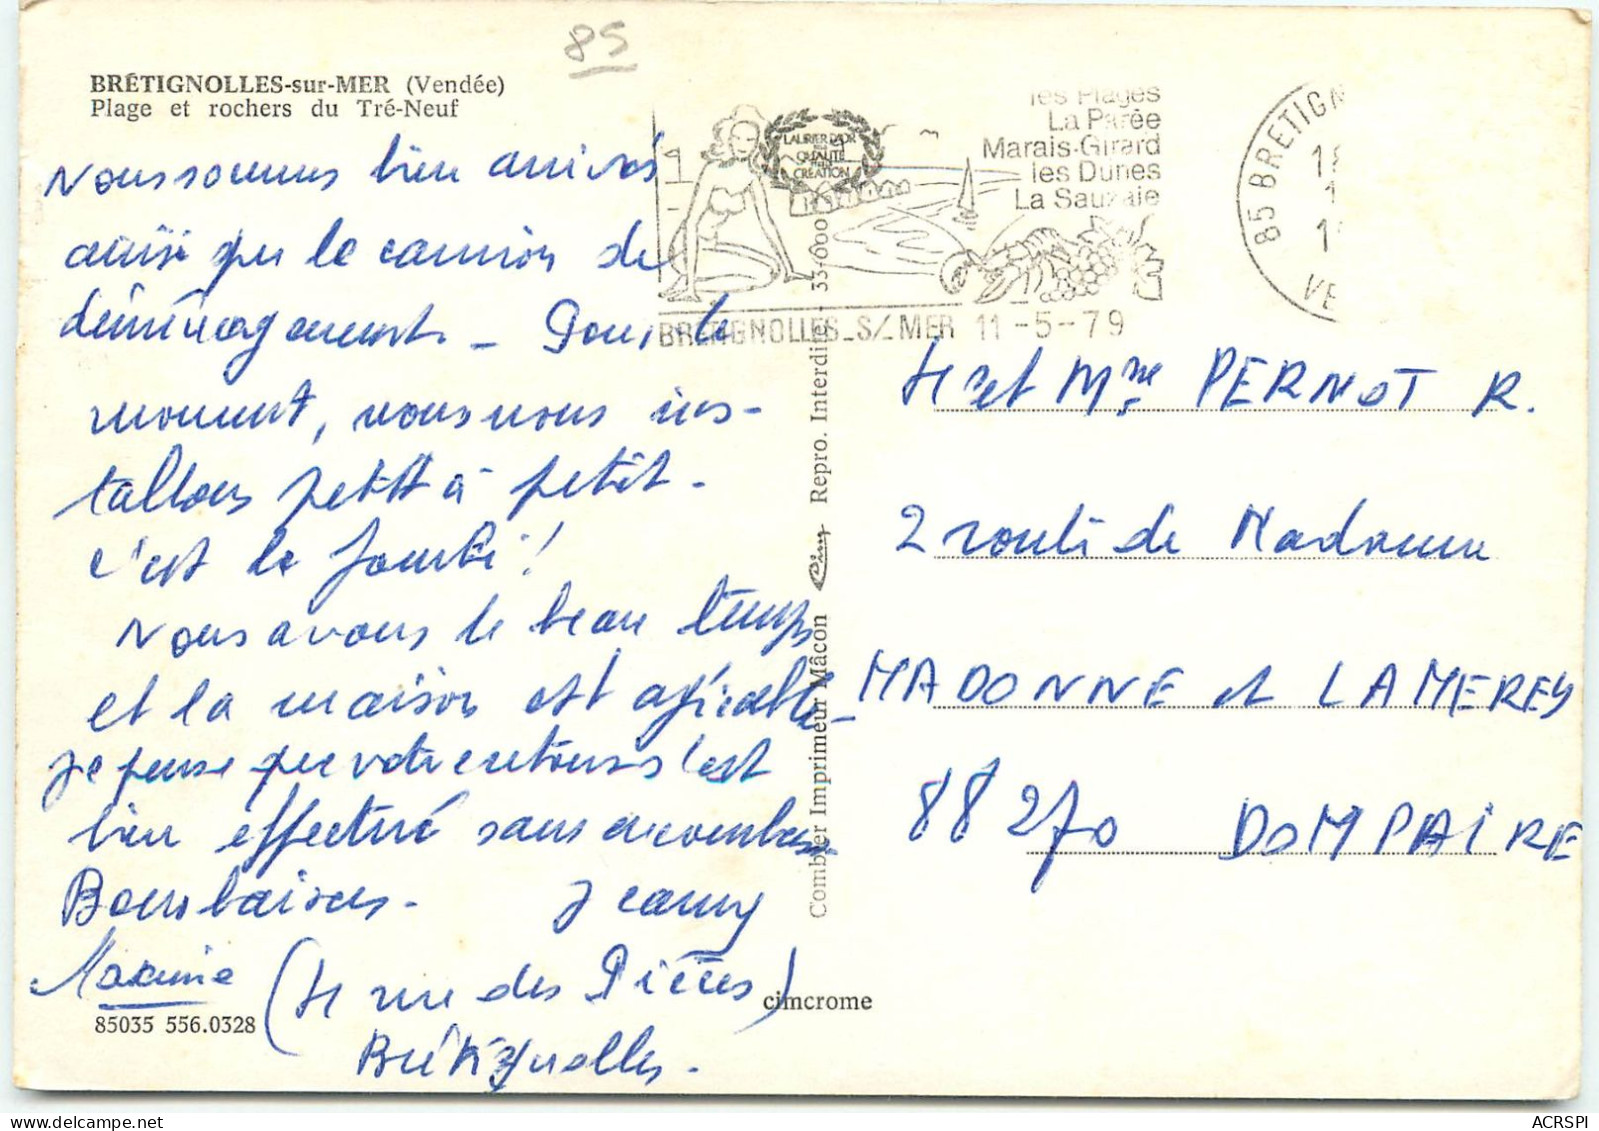 85
BRÉTIGNOLLES-sur-MER (Vendée)
Plage et rochers du Tré-Neuf
Nous sommes bien arrivés
ainsi que le camion de
déménagement - Pour le
moment, nous nous ins-
tallons petit à petit.
c'est le fourbi !
Nous avons le beau temps
et la maison est agréable -
Je pense que votre retour s'est
bien effectué sans encombre
Bons baisers. Jeanny
Maxime (4 rue des Pierres)
Brétignolles.
85035 556.0328
cimcrome
Combier Imprimeur Mâcon Cim Repro. Interdite - 33.000
LAURIER D'OR
DE LA
QUALITÉ
CRÉATION
les Plages
La Parée
Marais-Girard
les Dunes
La Sauzaie
BRETIGNOLLES-S/-MER 11-5-79
85 BRETIGN
VE
Mr et Mme PERNOT R.
2 route de Madonne
MADONNE et LAMEREY
88270 DOMPAIRE
ACRSPI